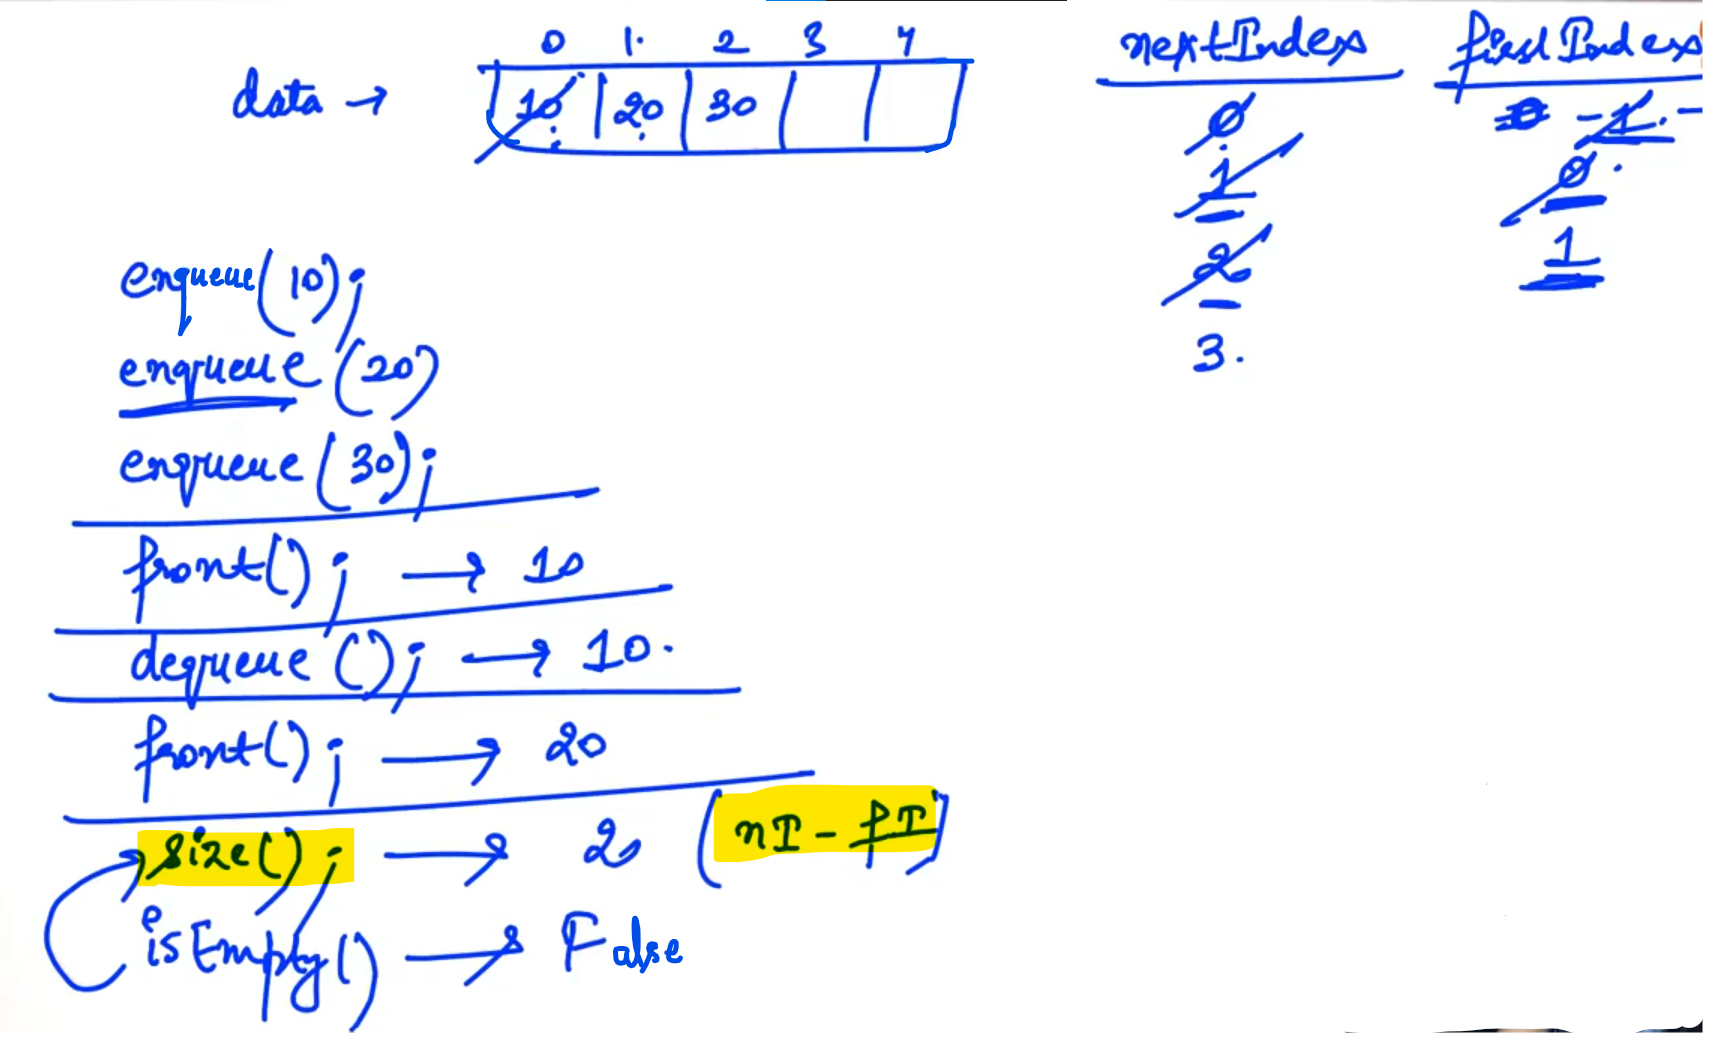 0 1. 2 3 4
data → 10 20 30
nextIndex firstIndex
0 0 -1. -
1 0.
2 1
3.
enqueue(10);
enqueue(20)
enqueue(30);
front(); → 10
dequeue(); → 10.
front(); → 20
size(); → 2 (nI - fI)
isEmpty() → False